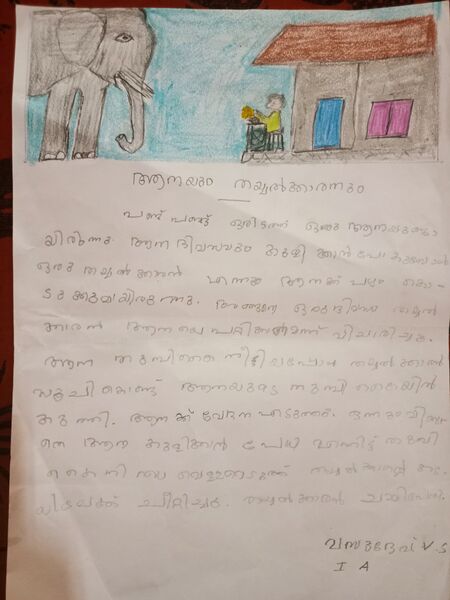 ആനയും തയ്യൽക്കാരനും
പണ്ട് പണ്ട് ഒരിടത്ത് ഒരു ആനയുണ്ടാ
യിരുന്നു. ആന ദിവസവും കുളി ക്കാൻ പോകുമ്പോൾ
ഒരു തയ്യൽ ക്കാരൻ എന്നും ആനക്ക് പഴം കൊ-
ടുക്കുമായിരുന്നു. അങ്ങനെ ഒരു ദിവസം തയ്യൽ
ക്കാരൻ ആനയെ പറ്റിക്കണമെന്ന് വിചാരിച്ചു.
ആന തുമ്പിക്കൈ നീട്ടിയപ്പോൾ തയ്യൽക്കാരൻ
സൂചികൊണ്ട് ആനയുടെ തുമ്പി കൈയിൽ
കുത്തി. ആനക്ക് വേദന എടുത്തു. ഒന്നും മിണ്ടാ
തെ ആന കുളിക്കാൻ പോയി എന്നിട്ട് തുമ്പി
കൈ നിറയെ വെള്ളമെടുത്ത് തയ്യൽക്കാരന്റെ കട
യിലേക്ക് ചീറ്റിച്ചു. തയ്യൽക്കാരൻ
വസുദേവ് V.S
I A